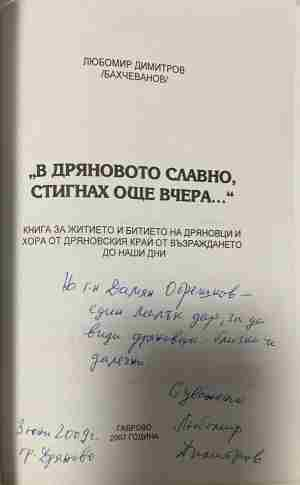 ЛЮБОМИР ДИМИТРОВ
/БАХЧЕВАНОВ/
„В ДРЯНОВОТО СЛАВНО,
СТИГНАХ ОЩЕ ВЧЕРА...“
КНИГА ЗА ЖИТИЕТО И БИТИЕТО НА ДРЯНОВЦИ И
ХОРА ОТ ДРЯНОВСКИЯ КРАЙ ОТ ВЪЗРАЖДАНЕТО
ДО НАШИ ДНИ
На г-н Дамян Обрешков –
един малък дар, за да
види дряновци – близки и
далечни
С уважение
Любомир
Димитров
3 юни 2009 г.
гр. Дряново
ГАБРОВО
2007 ГОДИНА